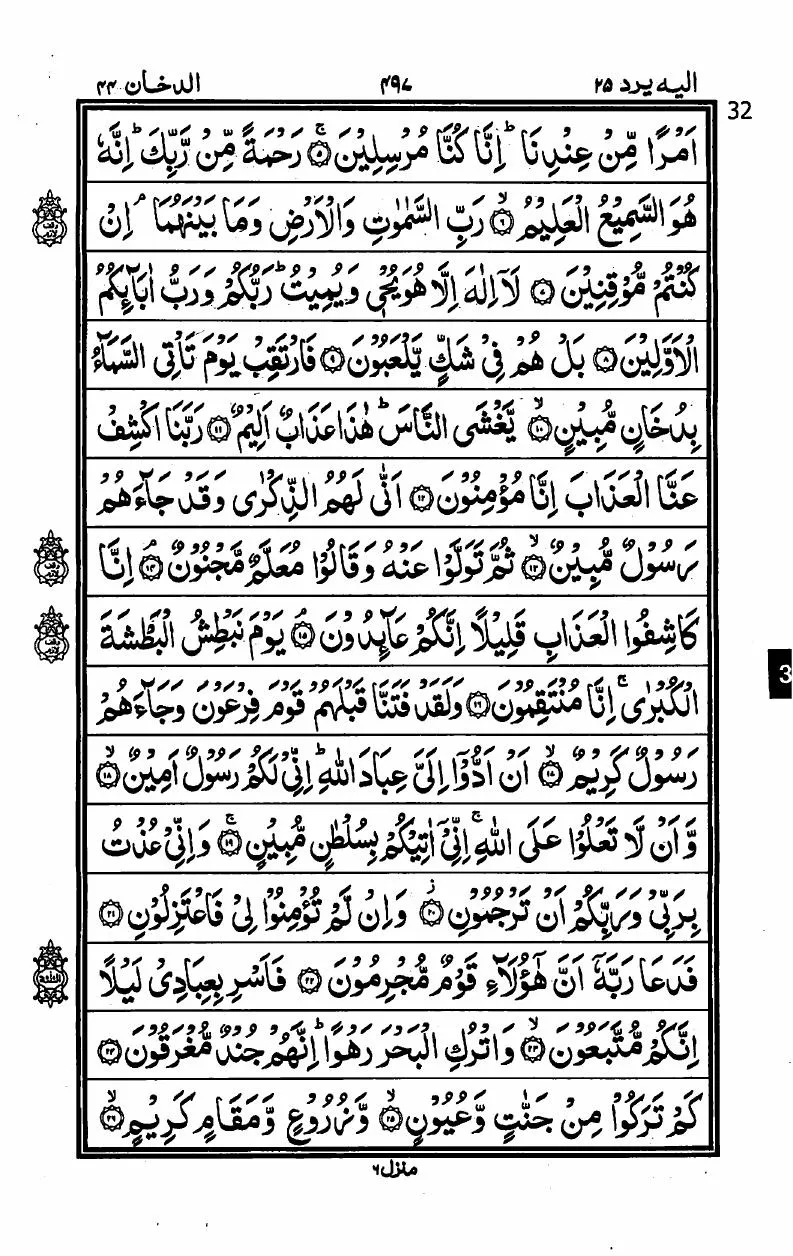 الیه یرد ۲۵ ۴۹۷ الدخان ۴۴
32
اَمْرًا مِّنْ عِنْدِنَا ؕ اِنَّا كُنَّا مُرْسِلِیْنَ ۚ۝۵ رَحْمَةً مِّنْ رَّبِّكَ ؕ اِنَّهٗ
هُوَ السَّمِیْعُ الْعَلِیْمُ ۙ۝۶ رَبِّ السَّمٰوٰتِ وَالْاَرْضِ وَمَا بَیْنَهُمَا ۘ اِنْ
كُنْتُمْ مُّوْقِنِیْنَ ۝۷ لَاۤ اِلٰهَ اِلَّا هُوَ یُحْیٖ وَیُمِیْتُ ؕ رَبُّكُمْ وَرَبُّ اٰبَآئِكُمُ
الْاَوَّلِیْنَ ۝۸ بَلْ هُمْ فِیْ شَكٍّ یَّلْعَبُوْنَ ۝۹ فَارْتَقِبْ یَوْمَ تَاْتِی السَّمَآءُ
بِدُخَانٍ مُّبِیْنٍ ۙ۝۱۰ یَّغْشَی النَّاسَ ؕ هٰذَا عَذَابٌ اَلِیْمٌ ۝۱۱ رَبَّنَا اكْشِفْ
عَنَّا الْعَذَابَ اِنَّا مُؤْمِنُوْنَ ۝۱۲ اَنّٰی لَهُمُ الذِّكْرٰی وَقَدْ جَآءَهُمْ
رَسُوْلٌ مُّبِیْنٌ ۙ۝۱۳ ثُمَّ تَوَلَّوْا عَنْهُ وَقَالُوْا مُعَلَّمٌ مَّجْنُوْنٌ ۘ۝۱۴ اِنَّا
كَاشِفُوا الْعَذَابِ قَلِیْلًا اِنَّكُمْ عَآئِدُوْنَ ۘ۝۱۵ یَوْمَ نَبْطِشُ الْبَطْشَةَ
الْكُبْرٰی ۚ اِنَّا مُنْتَقِمُوْنَ ۝۱۶ وَلَقَدْ فَتَنَّا قَبْلَهُمْ قَوْمَ فِرْعَوْنَ وَجَآءَهُمْ
رَسُوْلٌ كَرِیْمٌ ۙ۝۱۷ اَنْ اَدُّوْۤا اِلَیَّ عِبَادَ اللّٰهِ ؕ اِنِّیْ لَكُمْ رَسُوْلٌ اَمِیْنٌ ۙ۝۱۸
وَّاَنْ لَّا تَعْلُوْا عَلَی اللّٰهِ ۚ اِنِّیْۤ اٰتِیْكُمْ بِسُلْطٰنٍ مُّبِیْنٍ ۚ۝۱۹ وَاِنِّیْ عُذْتُ
بِرَبِّیْ وَرَبِّكُمْ اَنْ تَرْجُمُوْنِ ؗ۝۲۰ وَاِنْ لَّمْ تُؤْمِنُوْا لِیْ فَاعْتَزِلُوْنِ ۝۲۱
فَدَعَا رَبَّهٗۤ اَنَّ هٰۤؤُلَآءِ قَوْمٌ مُّجْرِمُوْنَ ۝۲۲ فَاَسْرِ بِعِبَادِیْ لَیْلًا
اِنَّكُمْ مُّتَّبَعُوْنَ ۙ۝۲۳ وَاتْرُكِ الْبَحْرَ رَهْوًا ؕ اِنَّهُمْ جُنْدٌ مُّغْرَقُوْنَ ۝۲۴
كَمْ تَرَكُوْا مِنْ جَنّٰتٍ وَّعُیُوْنٍ ۙ۝۲۵ وَّزُرُوْعٍ وَّمَقَامٍ كَرِیْمٍ ۙ۝۲۶
3
منزل ۶